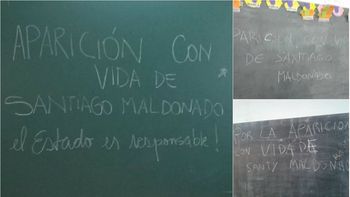 APARICIÓN CON
VIDA DE
SANTIAGO MALDONADO
el Estado es responsable!
PARICION CON
DE SANTIAGO
MALDONADO
POR LA APARICION
CON VIDA DE
SANTY MALDONADO